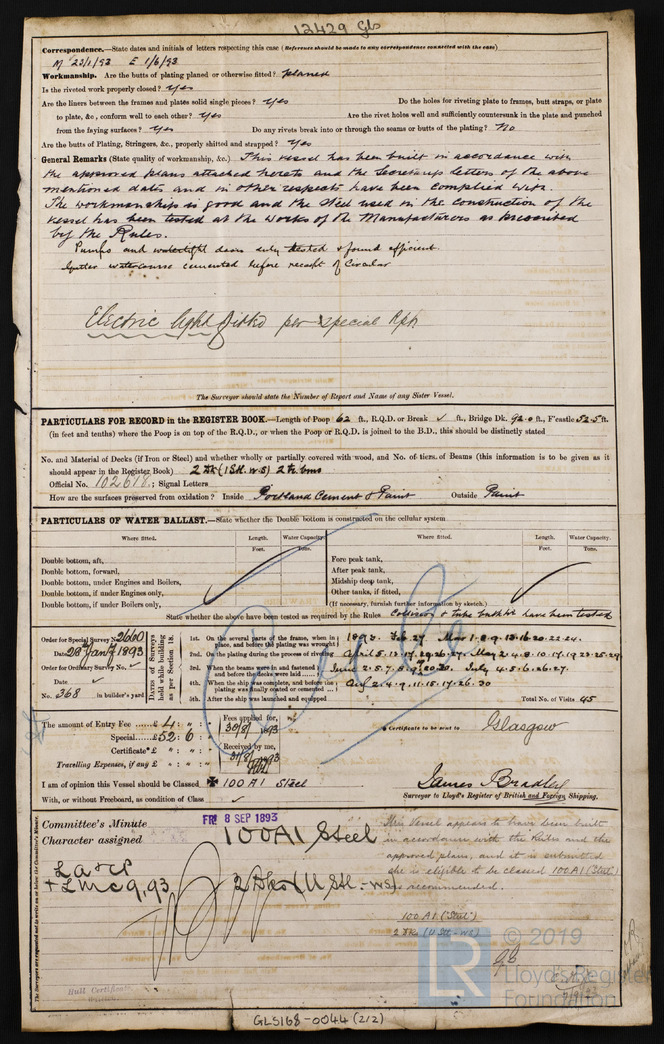 12429 Gls
Correspondence.—State dates and initials of letters respecting this case (Reference should be made to any correspondence connected with the case)
M 23/1/93 E 1/6/93
Workmanship. Are the butts of plating planed or otherwise fitted? planed
Is the riveted work properly closed? yes
Are the liners between the frames and plates solid single pieces? yes Do the holes for riveting plate to frames, butt straps, or plate
to plate, &c., conform well to each other? yes Are the rivet holes well and sufficiently countersunk in the plate and punched
from the faying surfaces? yes Do any rivets break into or through the seams or butts of the plating? No
Are the butts of Plating, Stringers, &c., properly shifted and strapped? yes
General Remarks (State quality of workmanship, &c.) This vessel has been built in accordance with
the approved plans attached hereto and the Secretarys letters of the above
mentioned dates and in other respects have been complied with.
The workmanship is good and the steel used in the construction of the
vessel has been tested at the works of the Manufacturers as prescribed
by the Rules.
Pumps and watertight doors duly tested & found efficient.
Gutter watercourse cemented before receipt of Circular
Electric light fitted per special Rpt.
The Surveyor should state the Number of Report and Name of any Sister Vessel.
PARTICULARS FOR RECORD in the REGISTER BOOK.—Length of Poop 62 ft., R.Q.D. or Break ✓ ft., Bridge Dk. 92.0 ft., F'castle 52.5 ft.
(in feet and tenths) where the Poop is on top of the R.Q.D., or when the Poop or R.Q.D. is joined to the B.D., this should be distinctly stated
No. and Material of Decks (if Iron or Steel) and whether wholly or partially covered with wood, and No. of tiers of Beams (this information is to be given as it
should appear in the Register Book) 2 Dk (1 Stl. W.S) 2 tr. bms
Official No. 102618; Signal Letters
How are the surfaces preserved from oxidation? Inside Portland Cement & Paint Outside Paint
PARTICULARS OF WATER BALLAST.—State whether the Double bottom is constructed on the cellular system
Where fitted. Length. Water Capacity. Where fitted. Length. Water Capacity.
Feet. Tons. Feet. Tons.
Double bottom, aft, Fore peak tank,
Double bottom, forward, After peak tank,
Double bottom, under Engines and Boilers, Midship deep tank,
Double bottom, if under Engines only, Other tanks, if fitted,
Double bottom, if under Boilers only, (If necessary, furnish further information by sketch.)
State whether the above have been tested as required by the Rules Collision & tube bulkhds have been tested
Order for Special Survey No. 2660
Date 28 Jany 1893
Order for Ordinary Survey No. ✓
Date ✓
No. 368 in builder's yard
DATES of Surveys held while building as per Section 18.
1st. On the several parts of the frame, when in place, and before the plating was wrought 1893. Feb. 27 Mar 1.8.9.13.16.20.22.24.
2nd. On the plating during the process of riveting April 5.13.17.29.26.27. May 2.4.8.10.17.19.23.25.29.
3rd. When the beams were in and fastened and before the decks were laid June 2.5.7. July 4.5.6.26.27.
4th. When the ship was complete, and before the plating was finally coated or cemented Aug 2.4.9.11.15.17.26.30
5th. After the ship was launched and equipped
Total No. of Visits 45
The amount of Entry Fee £ 4 : " : " Fees applied for, 30/8/1893
Special £52 : 6 : " Received by me, 31/8/93
Certificate* £ " : " : "
Travelling Expenses, if any £ " : " : "
Certificate to be sent to Glasgow
I am of opinion this Vessel should be Classed ✠ 100 A1 Steel
With, or without Freeboard, as condition of Class ✓
James Bradley
Surveyor to Lloyd's Register of British and Foreign Shipping.
Committee's Minute FRI 8 SEP 1893
Character assigned 100A1 Steel
LA & CP
+ LMC 9,93
2 Dks (U Stl. - WS)
This Vessel appears to have been built
in accordance with the Rules and the
approved plans, and it is submitted
she is eligible to be classed 100A1 (Steel)
as recommended.
100 A1 ("Steel")
2 Dks (U Stl - WS)
Hull Certificate
The Surveyors are requested not to write on or below the Committee's Minute.
LR © 2019
Lloyd's Register
Foundation
GLS168-0044 (2/2)